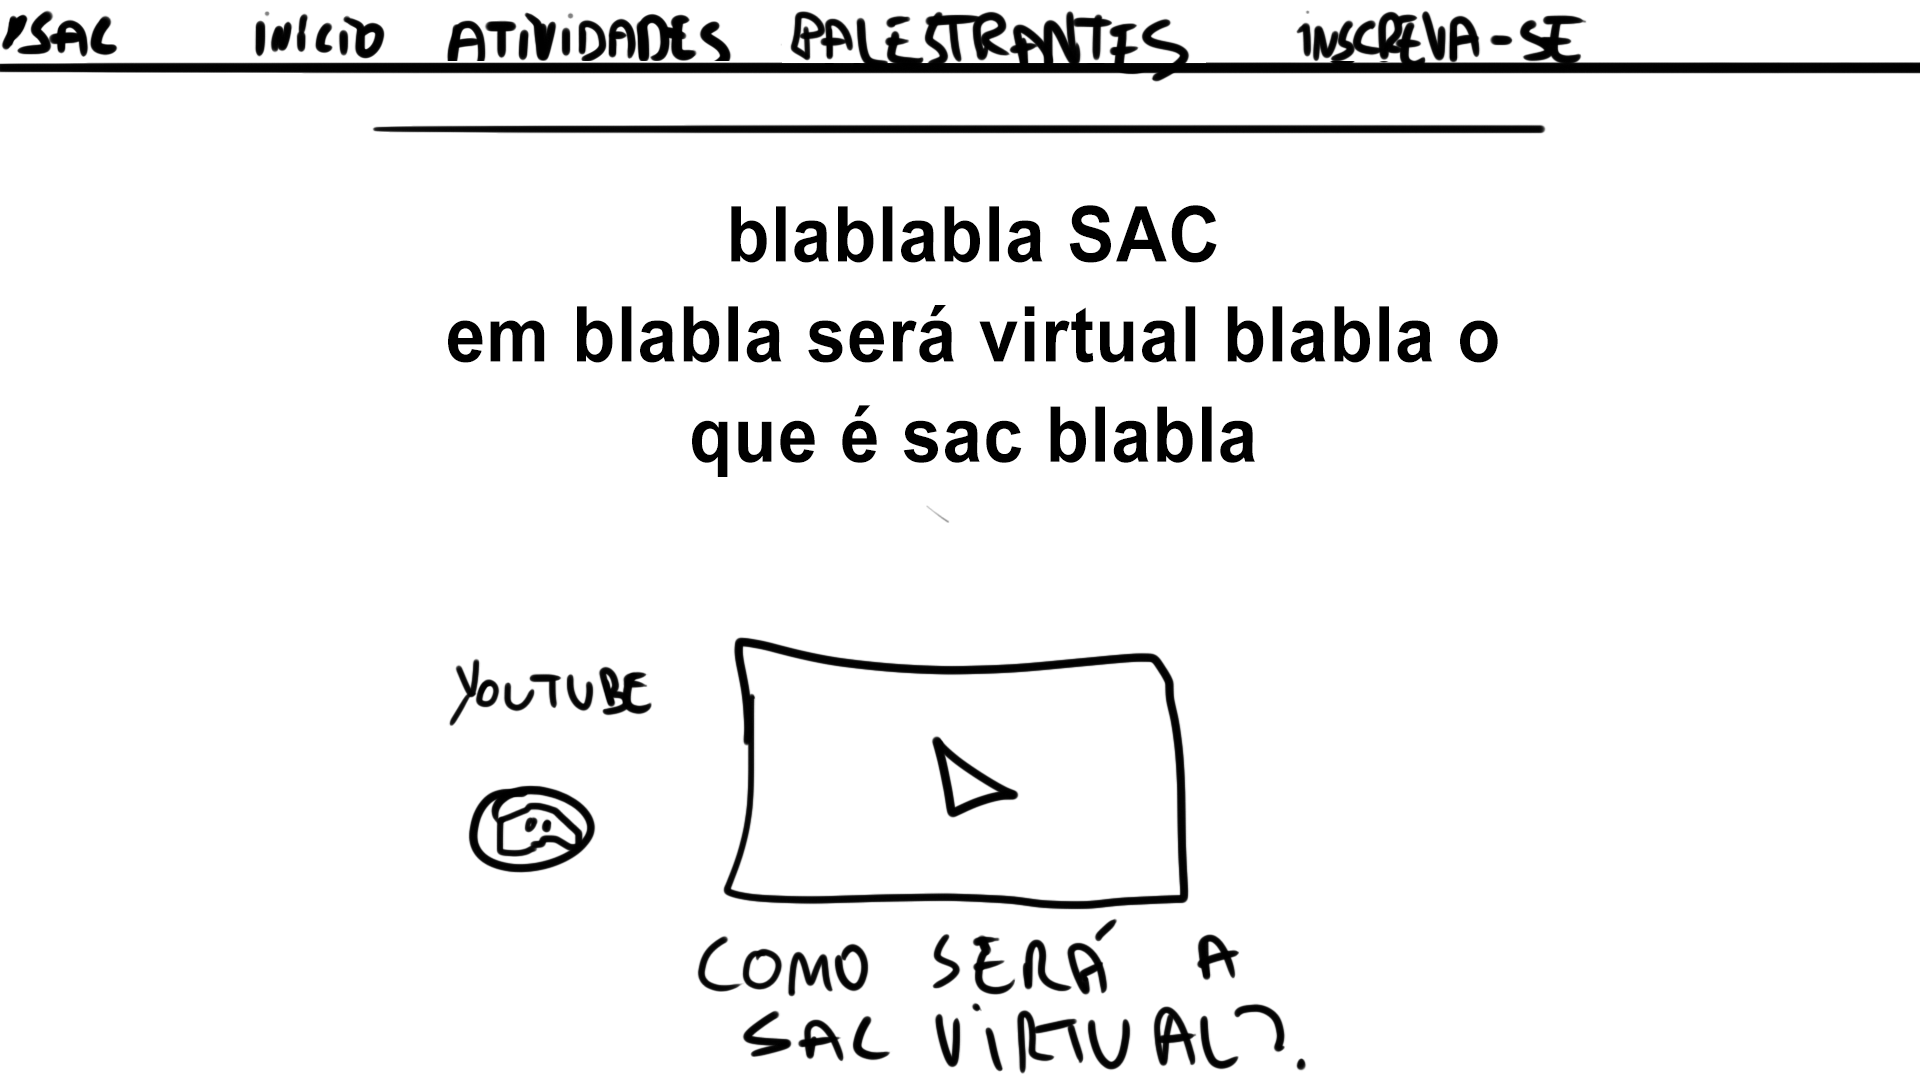 SAC INÍCIO ATIVIDADES PALESTRANTES INSCREVA-SE
blablabla SAC
em blabla será virtual blabla o
que é sac blabla
YOUTUBE
COMO SERÁ A
SAC VIRTUAL?